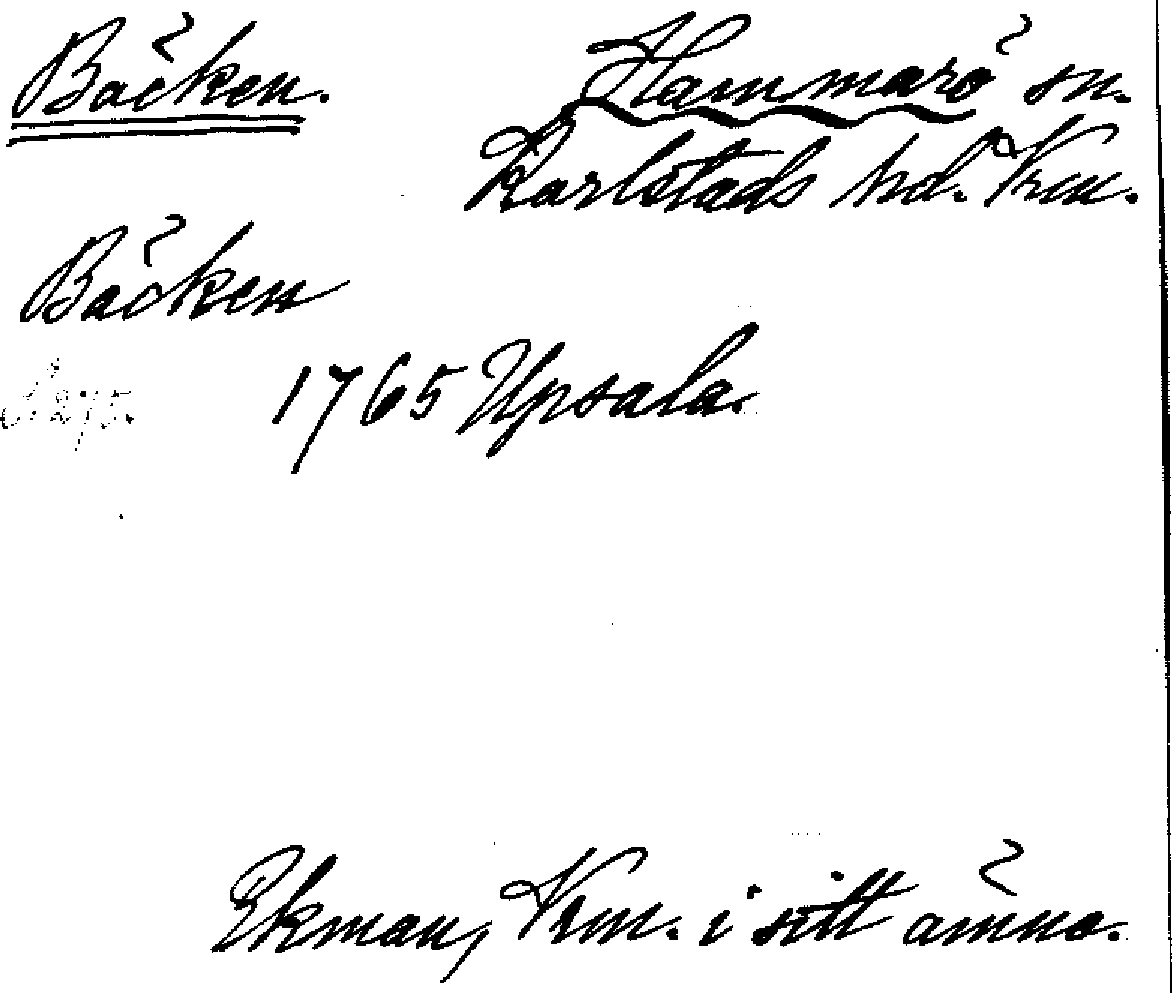 Bäcken. Hammarö sn.
Karlstads hd. Vrm.
Bäcken
1765 Upsala.
S. 275.
Ekman, Vrm. i sitt ämne.